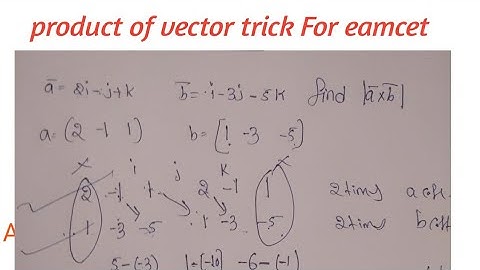 product of vector trick For eamcet
a̅ = 2i - j + k   b̅ = i - 3j - 5k   find |a̅×b̅|
a = (2 -1 1)   b = [1 -3 -5]
x i j k x
2 -1 1 2 -1 1   2 times a coff.
1 -3 -5 1 -3 -5   2 times b coff
A
5-(-3)   1-(-10)   -6-(-1)